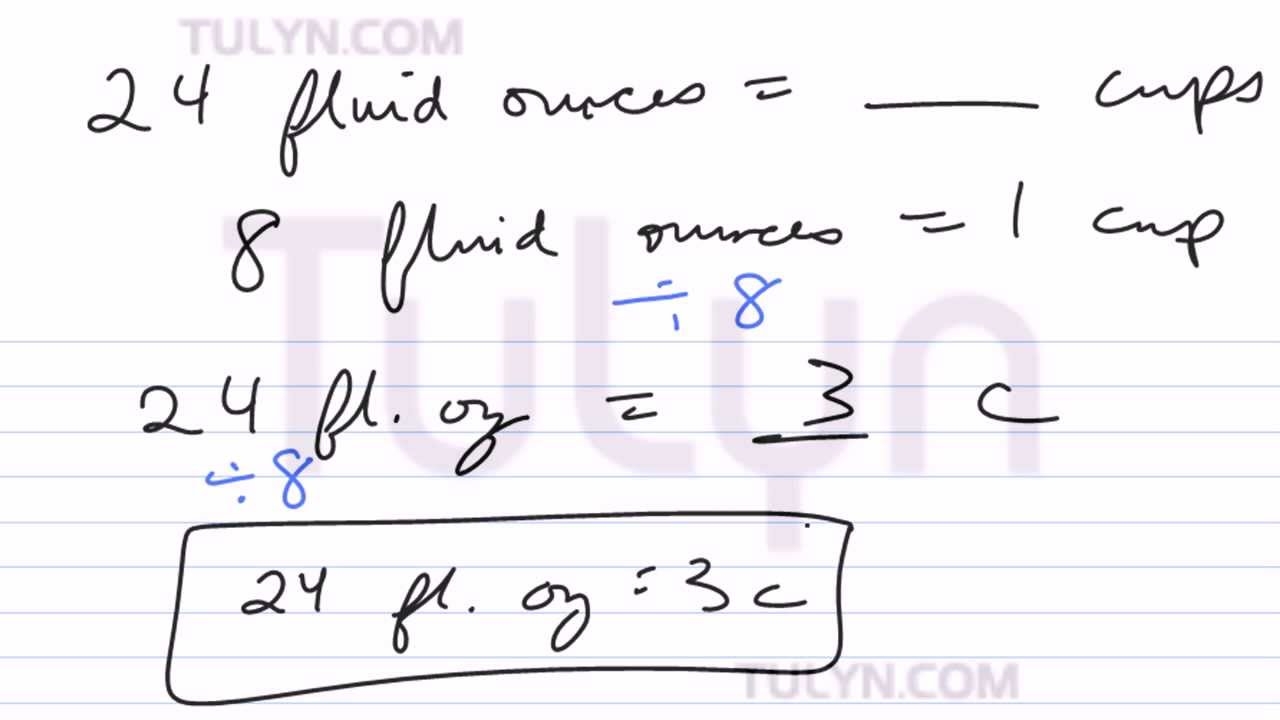 TULYN.COM
24 fluid ounces = ___ cups
8 fluid ounces = 1 cup
÷ 8
Tulyn
24 fl. oz = 3 c
÷ 8
24 fl. oz = 3 c
TULYN.COM